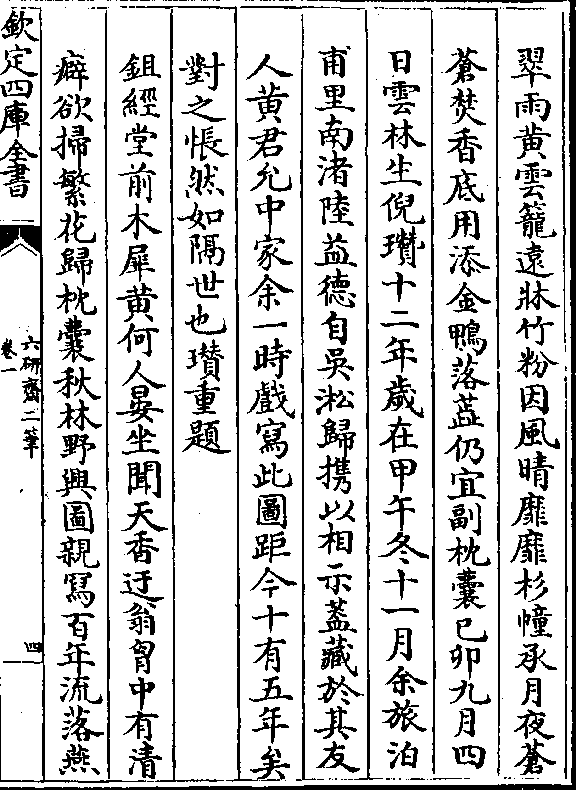 翠雨黄雲籠遠牀竹粉因風晴靡靡杉幢承月夜蒼
蒼焚香底用添金鴨落蕋仍宜副枕囊已卯九月四
日雲林生倪瓚十二年歲在甲午冬十一月余旅泊
甫里南渚陸益德自吳淞歸携以相示葢藏於其友
人黄君允中家余一時戲寫此圖距今十有五年矣
對之悵然如隔世也瓚重題
鉏經堂前木犀黄何人晏坐聞天香迂翁胷中有清
癖欲掃繁花歸枕囊秋林野興圖親寫百年流落燕
欽定四庫全書
六研齋二筆
卷一
四